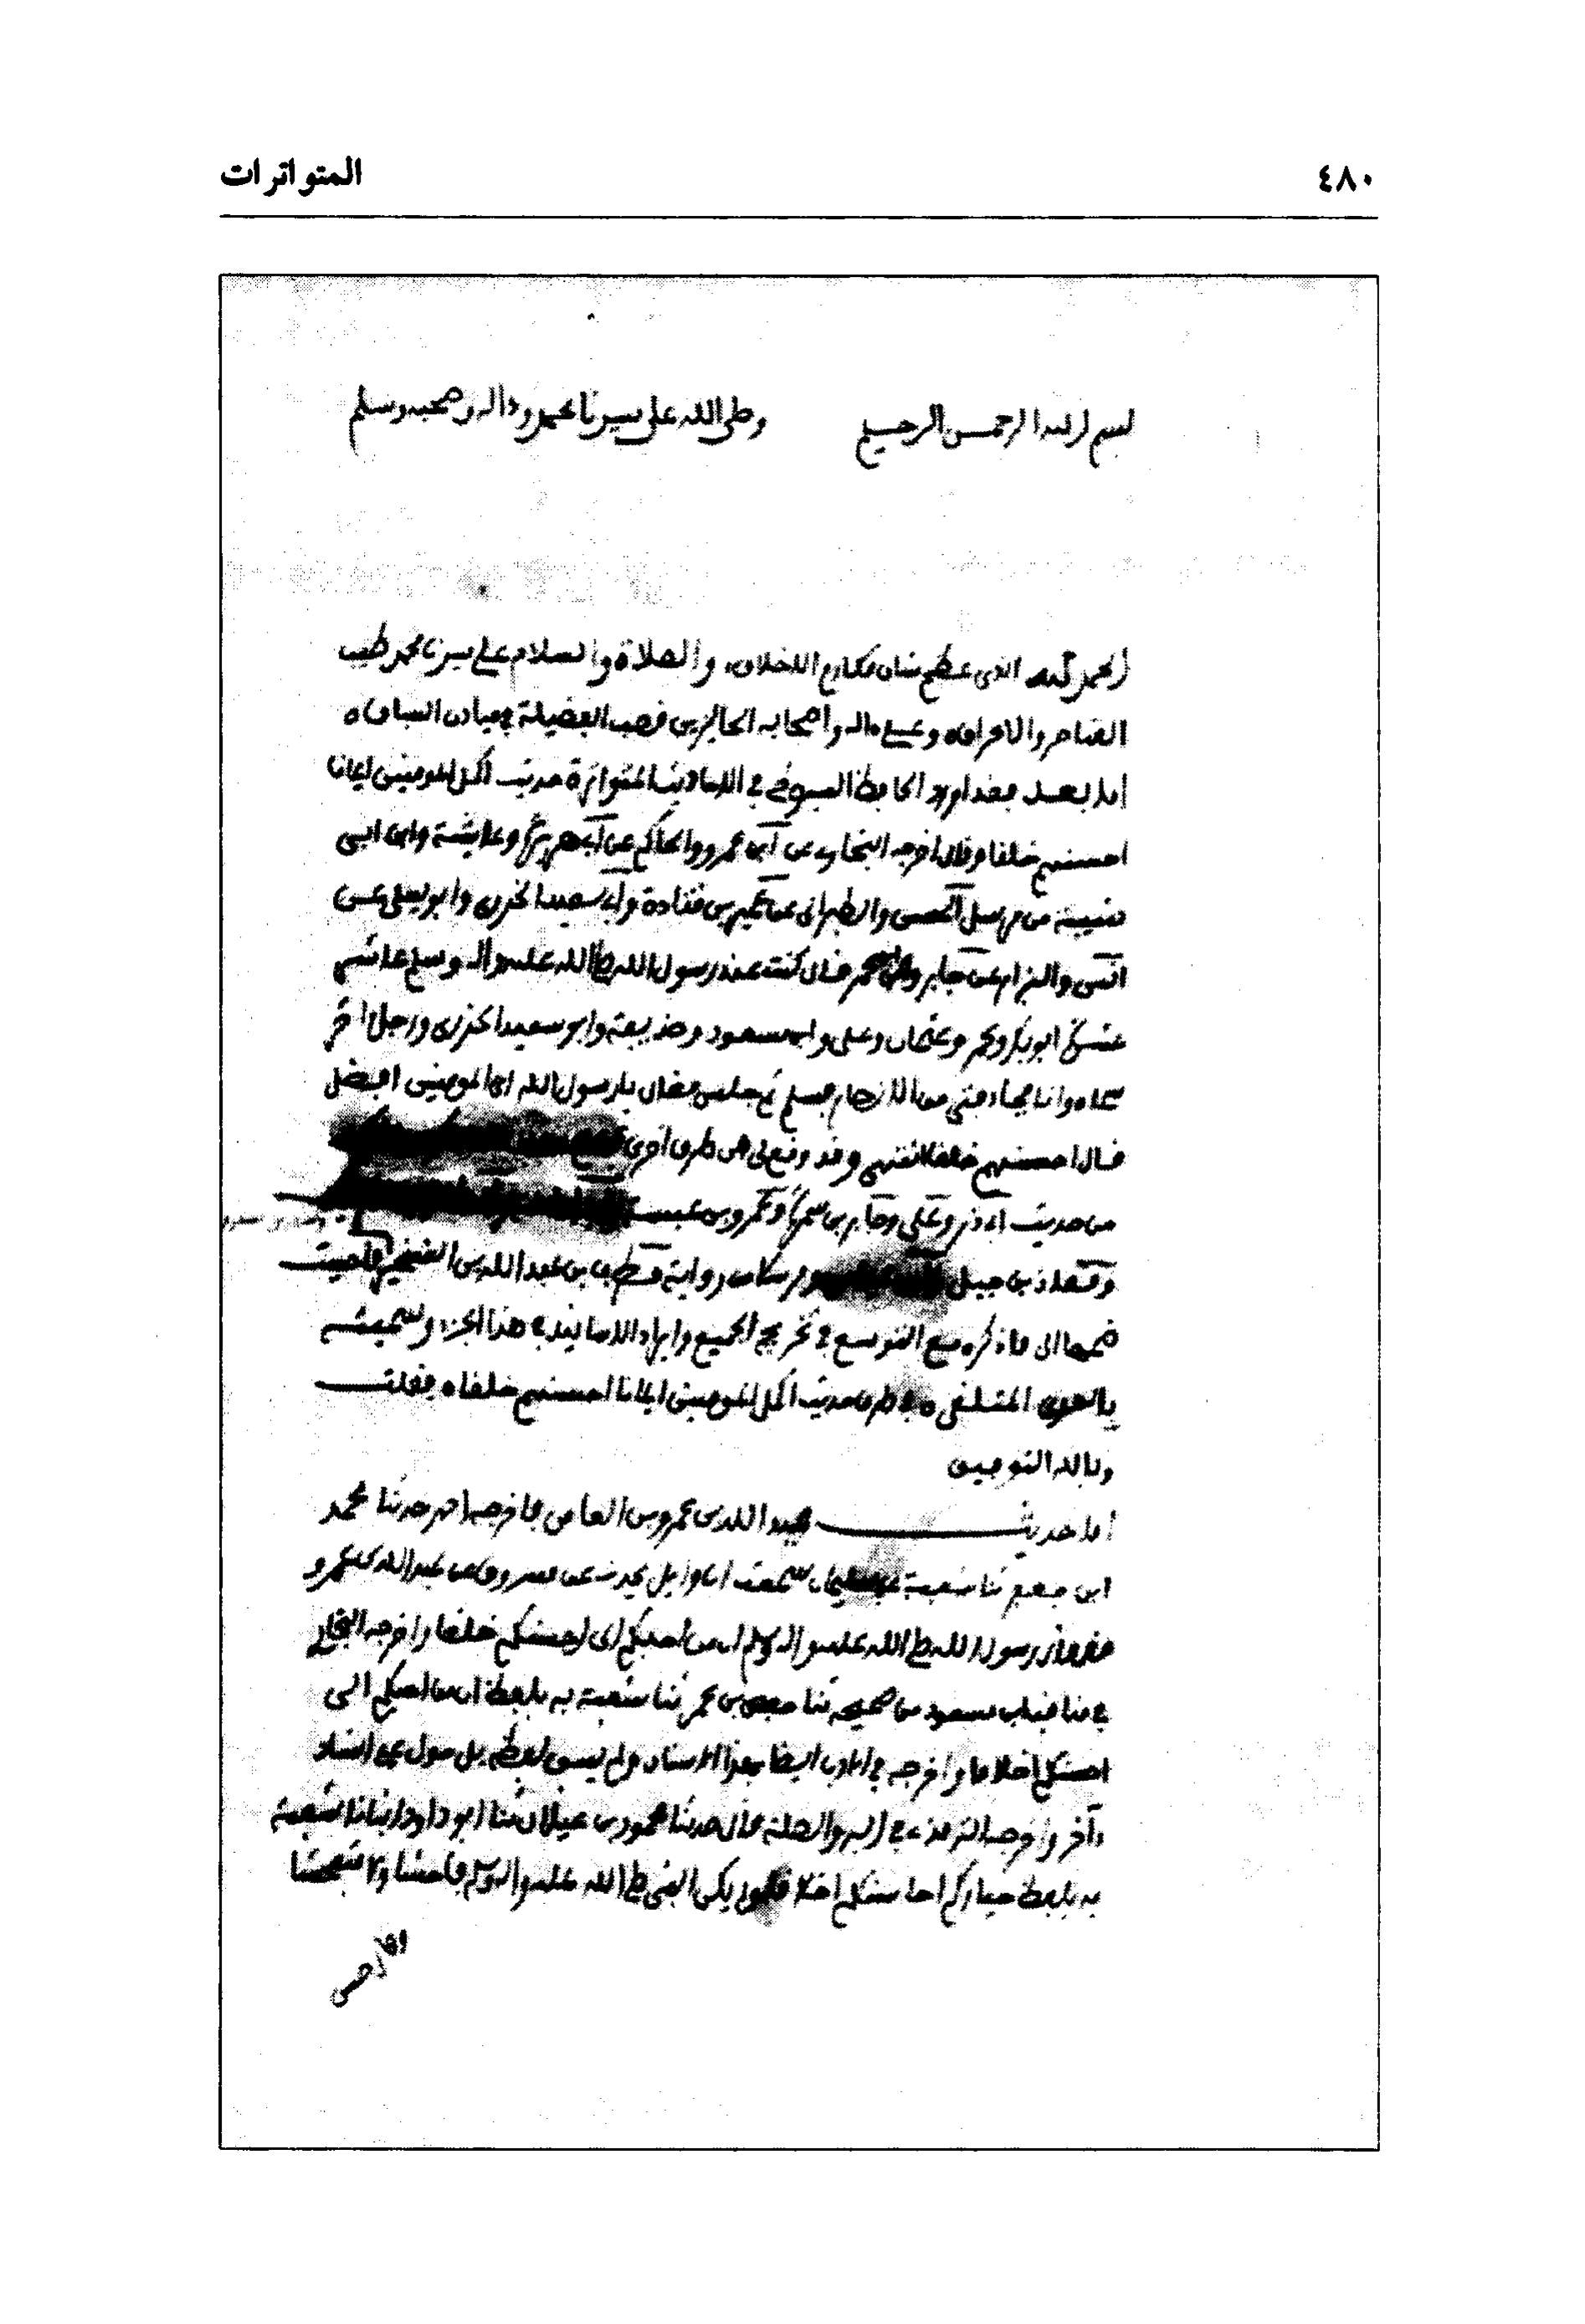 ٤٨٠
المتواترات
بسم الله الرحمن الرحيم وصلى الله على سيدنا محمد وءاله وصحبه وسلم
الحمد لله الذي عظم شان مكارم الاخلاق، والصلاة والسلام على سيدنا محمد طيب
العناصر والاعراق ه وعلى ءاله واصحابه الحائزين قصب الفضيلة في ميادن السباق ه
اما بعد فقد اورد الحافظ السيوطي في الاحاديث المتواترة حديث اكمل المومنين ايمانا
احسنهم خلقا وقال اخرجه البخاري عن ابن عمرو والحاكم عن ابي هريرة وعايشة وابن ابي
شيبة من مرسل الحسن والطبراني عن عمير بن قتادة وابي سعيد الخدري وابو يعلى عن
انس والبزار عن جابر وابن عمر قال كنت عند رسول الله صلى الله عليه واله وسلم عاشر
عشرة ابو بكر وعمر وعثمان وعلي وابن مسعود وحذيفة وابو سعيد الخدري ورجل اخر
سماه وانا فجاء فتى من الانصار فسلم ثم جلس فقال يا رسول الله اي المومنين افضل
قال احسنهم خلقا انتهى وقد وقع لي من طرق اخرى
من حديث ابي ذر وعلي وجابر بن سمرة وعمرو بن عبسة
ومعاذ بن جبل ومرسلا من رواية مطرف بن عبد الله بن الشخير فاحببت
ضمها الى ما ذكره مع التوسع في تخريج الجميع وايراد الاسانيد في هذا الجزء وسميته
المتلقى ه بطرق حديث اكمل المومنين ايمانا احسنهم خلقا ه فقلت
وبالله التوفيق
اما حديث عبد الله بن عمرو بن العاص فاخرجه احمد حدثنا محمد
ابن جعفر ثنا شعبة عن سليمان سمعت ابا وايل يحدث عن مسروق عن عبد الله بن عمرو
رسول الله صلى الله عليه واله وسلم ان من احبكم الي احسنكم خلقا واخرجه البخاري
في مناقب ابن مسعود من صحيحه ثنا حفص بن عمر ثنا شعبة به بلفظ ان من احبكم الي
احسنكم اخلاقا واخرجه في الادب ايضا بهذا الاسناد ولم يسق لفظه بل حول على اسناد
ءاخر واخرجه الترمذي في البر والصلة قال حدثنا محمود بن غيلان ثنا ابو داود انبانا شعبة
به بلفظ خياركم احاسنكم اخلاقا ولم يكن النبي صلى الله عليه واله وسلم فاحشا ولا متفحشا